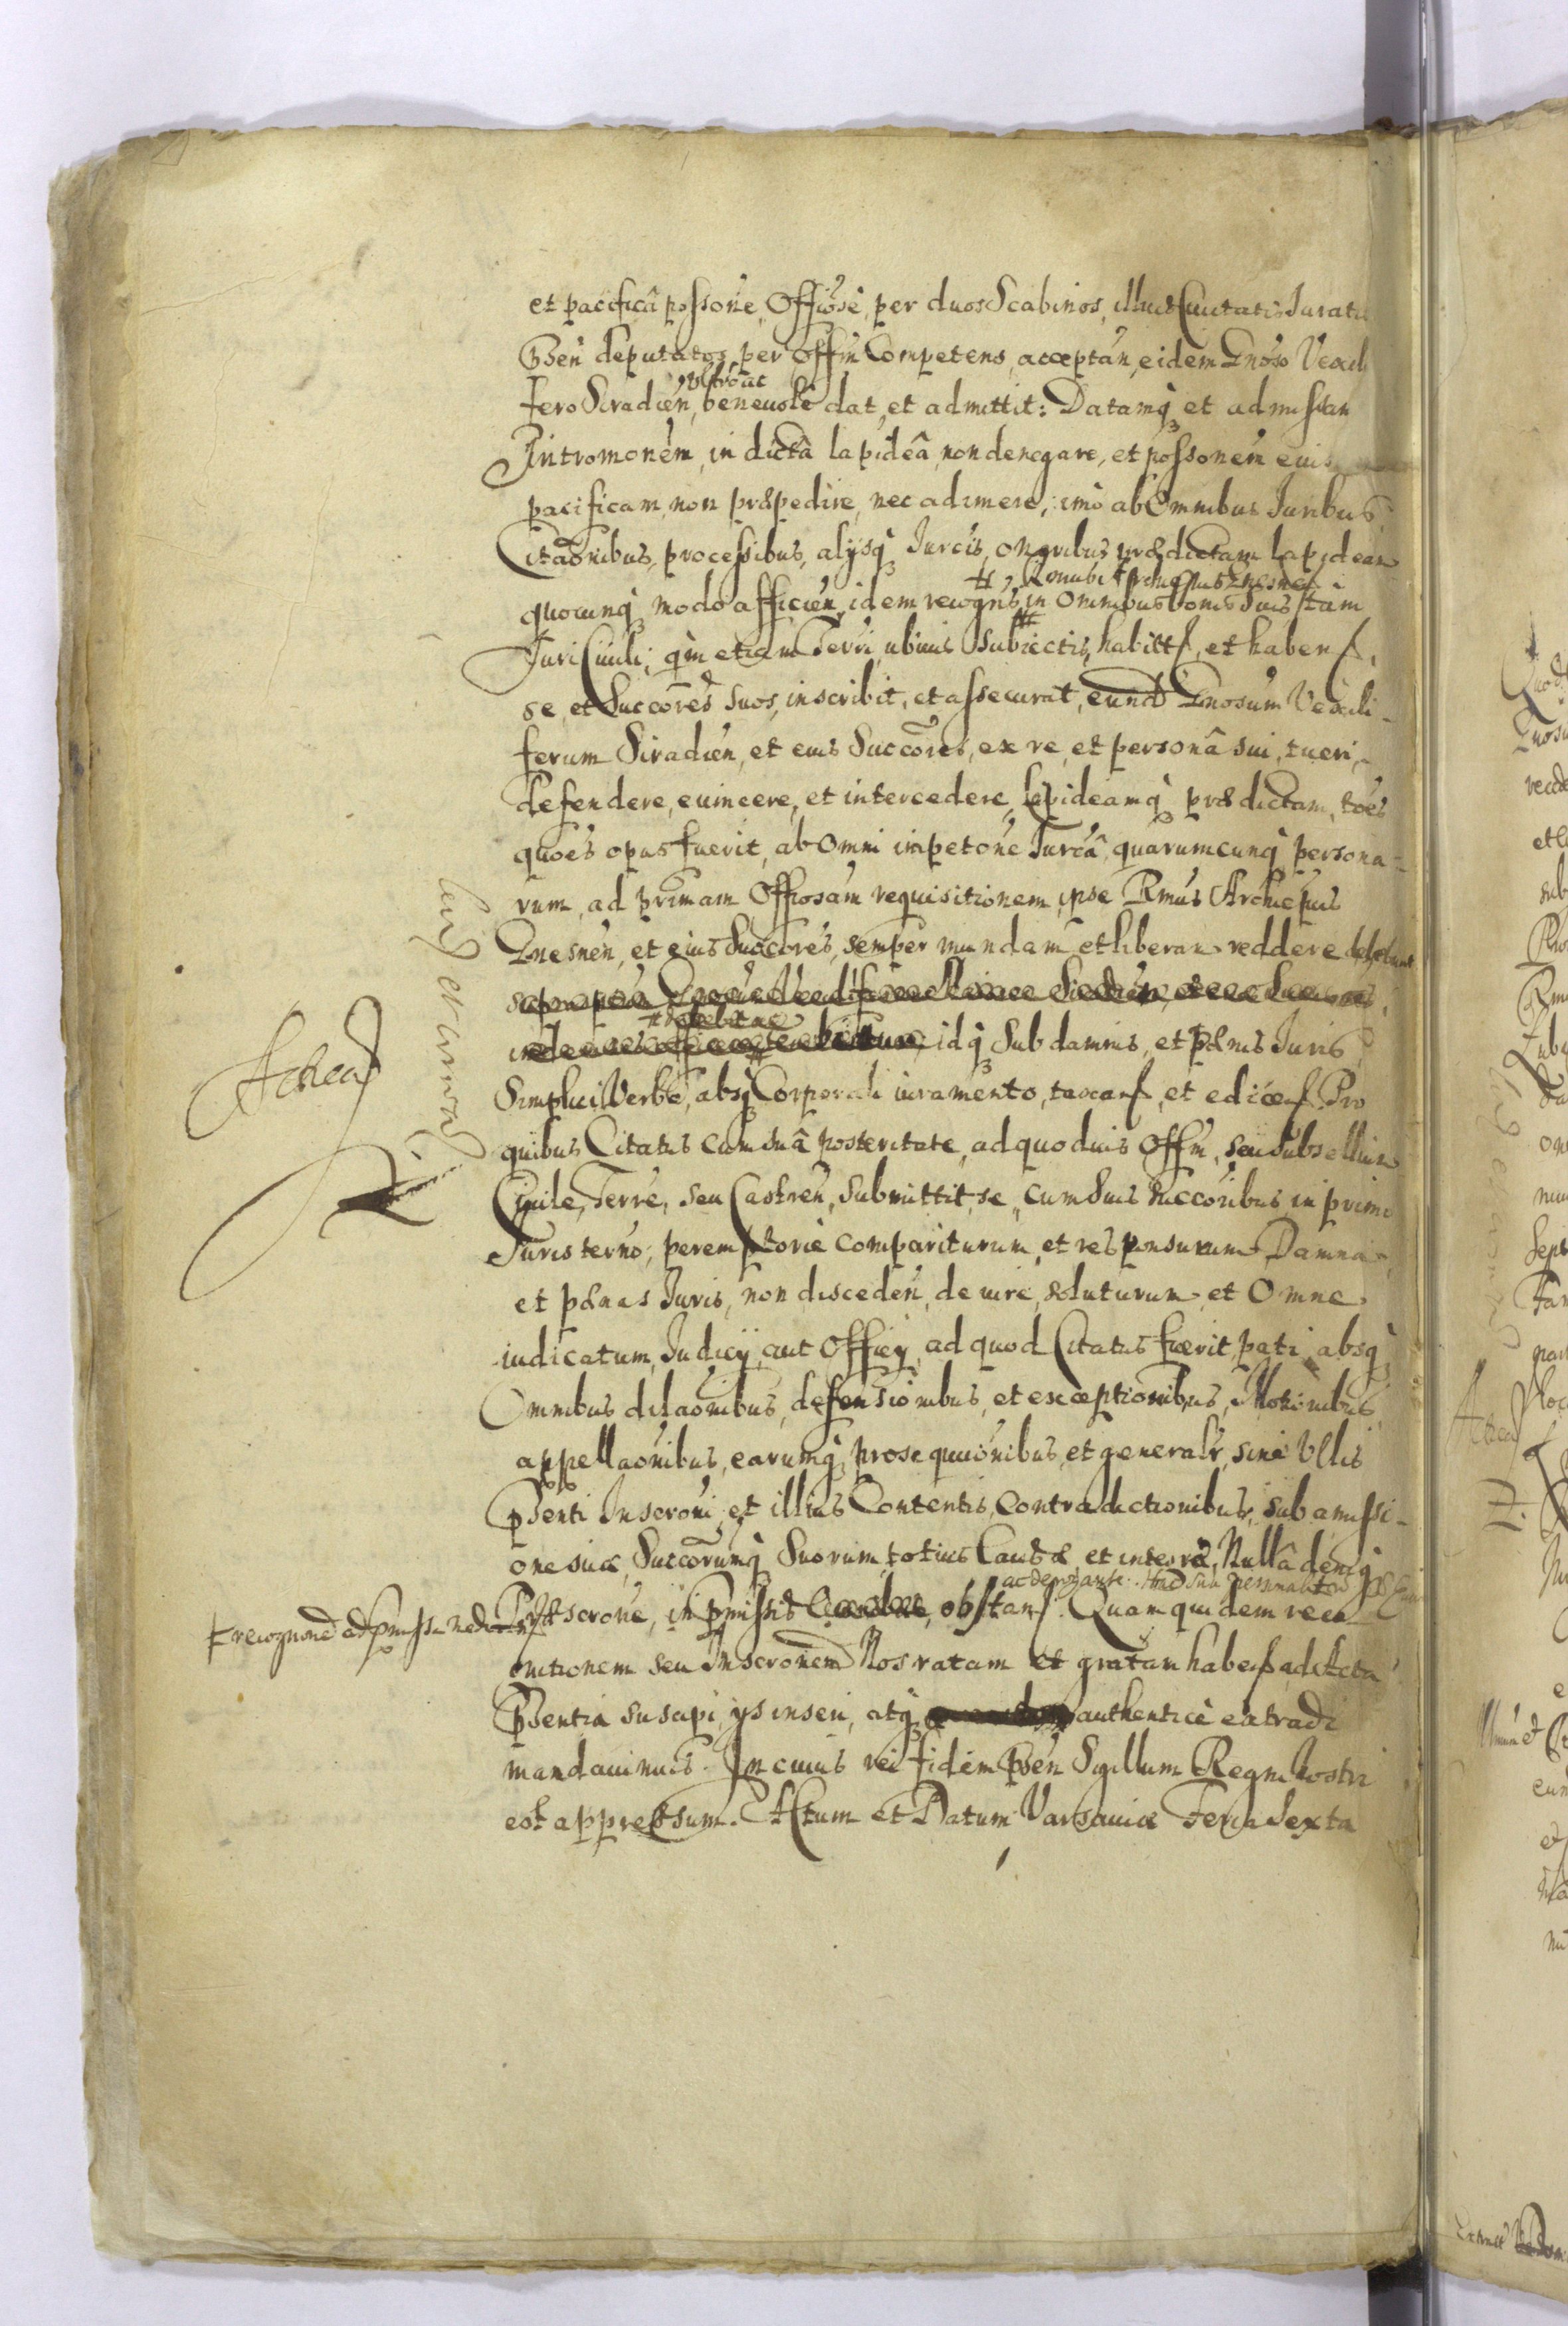 et pacificâ possone, Offiose, per duos Scabinos, illius Ciuitatis Iurato
Psen deputatos, per Offm Competens, acceptan, eidem Gnoso Vexil
fero Siradien, benevole dat, et admittit: Datamq et admissan
Intromonem, in dictâ lapideâ, non denegare, et possonem eius
pacificam, non præpedire, nec adimere, imò ab Omnibus Iuribus
Citaonibus, processibus, alysq Iurcis, oneribus prædictam lapidean
quocunq modo afficien, idem recogns, in Omnibus bonis suis, tàm
Iuri Ciuili, qm etiam Terri, ubiuis subiectis, habitis, et haben,
se, et Succores suos, inscribit, et assecurat, eund Gnosum Vexili-
ferum Siradien, et eius Succores, ex re, et personâ sui, tueri,
defendere, euincere, et intercedere, Lapideamq prædictam, toes
quoes opus fuerit, ab Omni impetone Iurcâ, quarumcunq persona-
rum, ad primam Offiosam requisitionem, ipse Rmus Archiepus
Gnesnen, et eius Succores, semper mundam et liberam reddere debebunt
idq sub damnis, et pænis Iuris
Simplici Verbo, absq Corporali iuramento, taxan, et edicen. Pro
quibus Citatus cum suâ posteritate, ad quoduis Offm, seu Subsellium
Ciuile, Terre, seu Castren, submittit se, cum suis succoribus, in primo
Iuris terno, peremptorie compariturum, et responsurum, Damna
et pænas Iuris, non disceden, de iure, soluturum et Omne
iudicatum, Iudicy, aut Officy, ad quod Citatus fuerit, pati, absq
Omnibus dilaonibus, defensionibus, et exceptionibus, Motionibus
appellaonibus, earumq prosequuonibus, et generalr, sine Vllis
Psenti Inscroni, et illius Contentis, Contradictionibus, sub amissi-
one suæ, Succorumq Suorum, totius Causæ, et integræ, Nullâ deniq
ac derogante.
Præscrone, in pmissis obstan. Quam quidem reco
gnitionem seu Inscronem Nos ratam et gratam haben, ad Acta
Psentia suscipi, ys inseri, atq authentice extradi
mandauimus. In cuius rei fidem Psen Sigillum Regni Nostri
est appressum. Actum et Datum Varsauiæ Feria Sexta